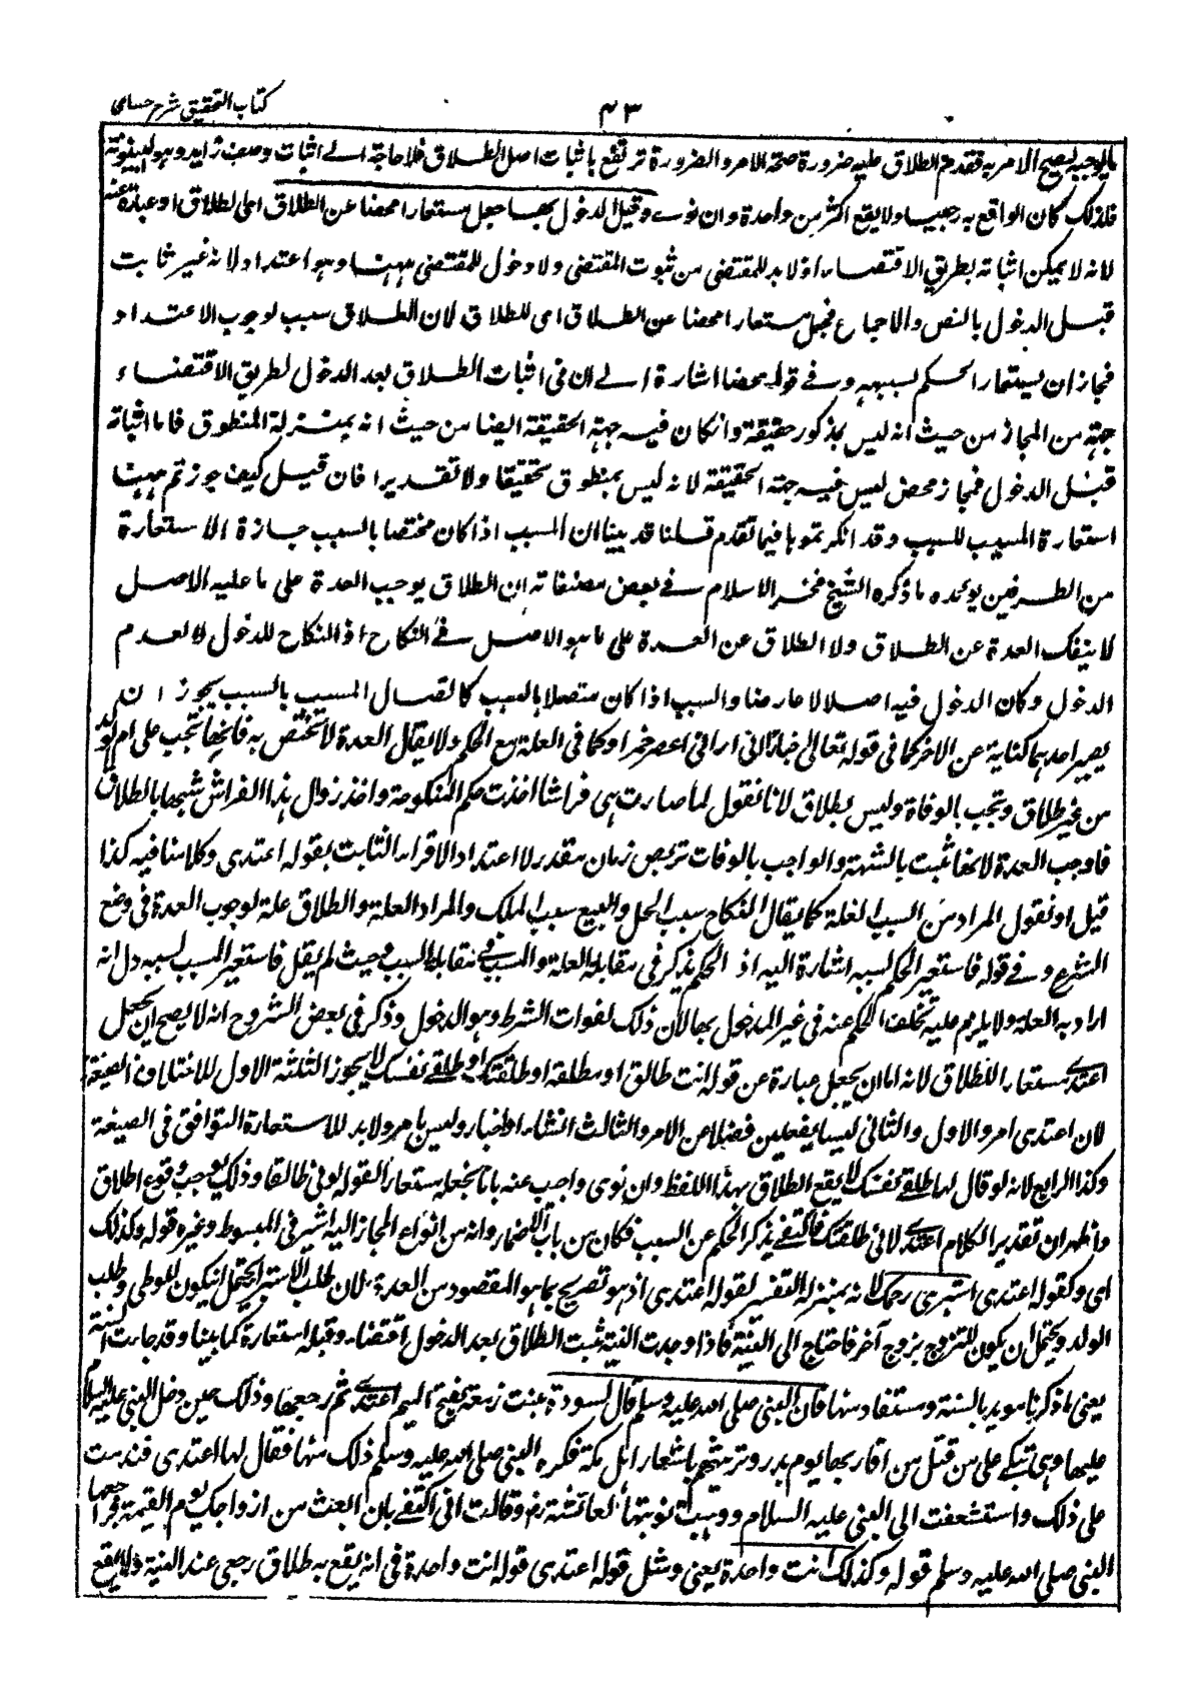 كتاب التحقيق شرح حسامى
٤٣
بالموجب ليصح الامر به فقدم الطلاق عليه ضرورة صحة الامر والضرورة ترتفع باثبات اصل الطلاق فلا حاجة الى اثبات وصف زايد وهو البينونة
فلذلك كان الواقع به رجعيا ولا يقع اكثر من واحدة وان نوى وقبل الدخول بها جعل مستعارا محضا عن الطلاق اى لطلاق او عبارة عنه
لانه لا يمكن اثباته بطريق الاقتضاء اذ لا بد للمقتضى من ثبوت المقتضى ولا دخول للمقتضى ههنا وهو اعتداد لانه غير ثابت
قبل الدخول بالنص والاجماع فجعل مستعارا محضا عن الطلاق اى للطلاق لان الطلاق سبب لوجوب الاعتداد
فجاز ان يستعار الحكم لسببه وفى قوله محضا اشارة الى ان فى اثبات الطلاق بعد الدخول لطريق الاقتضاء
جهة من المجاز من حيث انه ليس بمذكور حقيقة وانكان فيه جهة الحقيقة ايضا من حيث انه بمنزلة المنطوق فاما اثباته
قبل الدخول فمجاز محض ليس فيه جهة الحقيقة لانه ليس بمنطوق تحقيقا ولا تقديرا فان قيل كيف جوزتم ههنا
استعارة المسبب للسبب وقد انكرتموها فيما تقدم قلنا قد بينا ان المسبب اذا كان مختصا بالسبب جازة الاستعارة
من الطرفين يؤيده ما ذكره الشيخ فخر الاسلام فى بعض مصنفاته ان الطلاق يوجب العدة على ما عليه الاصل
لا ينفك العدة عن الطلاق ولا الطلاق عن العدة على ما هو الاصل فى النكاح اذ النكاح للدخول لا لعدم
الدخول وكان الدخول فيه اصلا لا عارضا والسبب اذا كان متصلا بالسبب كاتصال المسبب بالسبب يجوز ان
يصير احدهما كناية عن الاخر كما فى قوله تعالى خبارا انى ارانى اعصر خمرا وكما فى العلة مع الحكم ولا يقال العدة لا تختص به فانها تجب على ام الولد
من غير طلاق وتجب بالوفاة وليس بطلاق لانا نقول لما صارت هى فراشا اخذت حكم المنكوحة واخذ زوال هذا الفراش شبها بالطلاق
فاوجب العدة لانها تثبت بالشبهة والواجب بالوفات تربص زمان مقدر لا اعتداد الاقراء الثابت بقوله اعتدى وكلامنا فيه كذا
قيل او نقول المراد من السبب العلة كما يقال النكاح سبب الحل والبيع سبب الملك والمراد العلة والطلاق علة لوجوب العدة فى وضع
الشرع وفى قوله فاستعير الحكم لسببه اشارة اليه اذ الحكم يذكر فى مقابلة العلة والمسبب فى مقابلة السبب وحيث لم يقل فاستعير المسبب لسببه دل انه
اراد به العلة ولا يلزم عليه تخلف الحكم عنه فى غير المدخول بها لان ذلك لفوات الشرط وهو الدخول وذكر فى بعض الشروح انه لا يصح ان يجعل
اعتدى مستعارا للطلاق لانه اما ان يجعل عبارة عن قوله انت طالق او مطلقة او طلقتك او طلقى نفسك لا يجوز الثلثة الاول للاختلاف الصيغة
لان اعتدى امر والاول والثانى ليسا بفعلين فضلا عن الامر والثالث انشاء او اخبار وليس بامر ولا بد للاستعارة التوافق فى الصيغة
وكذا الرابع لانه لو قال لها طلقى نفسك لا يقع الطلاق بهذا اللفظ وان نوى واجب عنه بانا نجعله مستعارا لقوله كونى طالقا وذلك يوجب وقوع الطلاق
واظهر ان تقدير الكلام اعتدى لانى طلقتك فاكتفى بذكر الحكم عن السبب فكان من باب الاضمار وانه من انواع المجاز اليه اشير فى المبسوط وغيره قوله وكذلك
اى وكقوله اعتدى استبرى رحمك لانه بمنزلة التفسير لقوله اعتدى اذ هو تصريح بما هو المقصود من العدة لان طلب الاستبراء يحتمل ان يكون للوطى وطلب
الولد ويحتمل ان يكون للتزوج بزوج آخر فاحتاج الى النية فاذا وجدت النية ثبت الطلاق بعد الدخول اقتضاء وقبله استعارة كما بينا وقد جاءت السنة
يعنى ما ذكرنا مويد بالسنة ومستفاد منها فان النبى صلى الله عليه وسلم قال لسودة بنت زمعة بفتح الميم اعتدى ثم رجعها وذلك حين دخل النبى عليه السلام
عليها وهى تبكى على من قتل من اقاربها يوم بدر وترثيهم باشعار اهل مكة فكره النبى صلى الله عليه وسلم ذلك منها فقال لها اعتدى فندمت
على ذلك واستشفعت الى النبى عليه السلام ووهبت نوبتها لعائشة رض وقالت انى اكتفى بان ابعث من ازواجك يوم القيمة فراجعها
النبى صلى الله عليه وسلم قوله وكذلك انت واحدة يعنى ومثل قوله اعتدى قوله انت واحدة فى انه يقع به طلاق رجعى عند النية ولا يقع